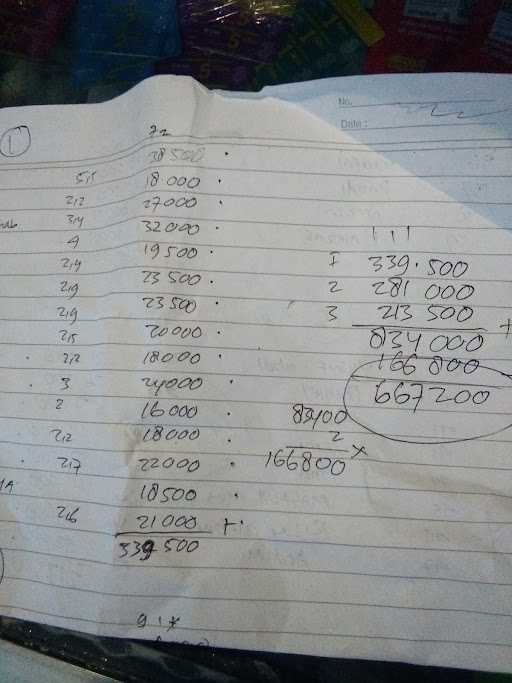 No.
Date :
1
72
28 500 .
5,5 18 000 .
2,2 27000 .
3,4 32000 .
4 19 500 .
2,4 23 500 .
2,9 23 500 .
2,9 20000 .
2,5 18000 .
2,2 24000 .
3 16 000 .
2 18000 .
2,2 22000 .
2,7 18500 .
2,6 21 000 +
339 500
1 1 1
I 339.500
2 281 000
3 213 500 +
834 000
166 800
667 200
83400
2 x
166800